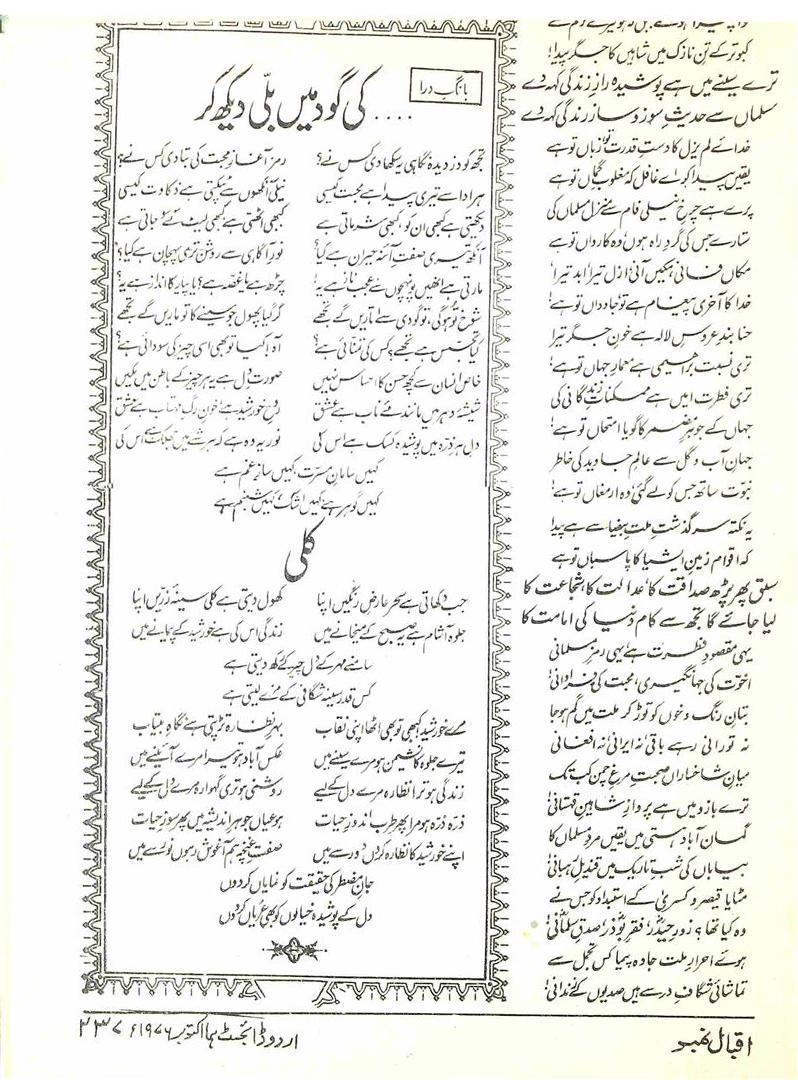 کبوتر کے تنِ نازک میں شاہیں کا جگر پیدا!
ترے سینے میں ہے پوشیدہ رازِ زندگی کہہ دے
مسلماں سے حدیثِ سوز و سازِ زندگی کہہ دے
خدائے لم یزل کا دستِ قدرت تو زباں تو ہے
یقیں پیدا کر اے غافل کہ مغلوبِ گماں تو ہے
پرے ہے چرخِ نیلی فام سے منزل مسلماں کی
ستارے جس کی گردِ راہ ہوں وہ کارواں تو ہے
مکاں فانی، مکیں آنی، ازل تیرا، ابد تیرا
خدا کا آخری پیغام ہے تو، جاوداں تو ہے!
حنا بندِ عروسِ لالہ ہے خونِ جگر تیرا
تری نسبت براہیمی ہے معمارِ جہاں تو ہے!
تری فطرت امیں ہے ممکناتِ زندگانی کی
جہاں کے جوہرِ مضمر کا گویا امتحاں تو ہے!
جہانِ آب و گل سے عالمِ جاوید کی خاطر
نبوت ساتھ جس کو لے گئی وہ ارمغاں تو ہے!
یہ نکتہ سرگذشتِ ملتِ بیضا سے ہے پیدا
کہ اقوامِ زمینِ ایشیا کا پاسباں تو ہے
سبق پھر پڑھ صداقت کا، عدالت کا، شجاعت کا
لیا جائے گا تجھ سے کام دنیا کی امامت کا
یہی مقصودِ فطرت ہے، یہی رمزِ مسلمانی
اخوت کی جہانگیری، محبت کی فراوانی!
بتانِ رنگ و خوں کو توڑ کر ملت میں گم ہو جا
نہ تورانی رہے باقی نہ ایرانی نہ افغانی
میانِ شاخساراں صحبتِ مرغِ چمن کب تک
ترے بازو میں ہے پروازِ شاہینِ قہستانی!
گمان آبادِ ہستی میں یقیں مردِ مسلماں کا
بیاباں کی شبِ تاریک میں قندیلِ رہبانی!
مٹایا قیصر و کسریٰ کے استبداد کو جس نے
وہ کیا تھا؟ زورِ حیدر، فقرِ بوذر، صدقِ سلمانی!
ہوئے احرارِ ملت جادہ پیما کس تجمل سے
تماشائی شگافِ در سے ہیں صدیوں کے زندانی!
بانگِ درا
.... کی گود میں بلّی دیکھ کر
تجھ کو دزدیدہ نگاہی یہ سکھا دی کس نے؟ رمز آغازِ محبت کی بتا دی کس نے؟
ہر ادا سے تیری پیدا ہے محبت کیسی نیلی آنکھوں سے ٹپکتی ہے ذکاوت کیسی
دیکھتی ہے کبھی ان کو، کبھی شرماتی ہے کبھی اٹھتی ہے کبھی لیٹ کے سو جاتی ہے
آنکھ تیری صفتِ آئنہ حیران ہے کیا؟ نورِ آگاہی سے روشن تری پہچان ہے کیا؟
مارتی ہے انھیں پونہچوں سے عجب ناز ہے یہ! چڑھ ہے یا غصہ ہے؟ یا پیار کا انداز ہے یہ؟
شوخ تو ہوگی، تو گودی سے اتاریں گے تجھے گر گیا پھول جو سینے کا تو ماریں گے تجھے
کیا تجسس ہے تجھے؟ کس کی تمنائی ہے؟ آہ! کیا تو بھی اسی چیز کی سودائی ہے؟
خاص انسان سے کچھ حسن کا احساس نہیں صورتِ دل ہے یہ ہر چیز کے باطن میں مکیں
شیشۂ دہر میں مانندِ مئے ناب ہے عشق روحِ خورشید ہے، خونِ رگِ مہتاب ہے عشق
دلِ ہر ذرہ میں پوشیدہ کسک ہے اس کی نور یہ وہ ہے کہ ہر شے میں جھلک ہے اس کی
کہیں سامانِ مسرت، کہیں سازِ غم ہے
کہیں گوہر ہے کہیں اشک کہیں شبنم ہے
کلی
جب دکھاتی ہے سحر عارضِ رنگیں اپنا کھول دیتی ہے کلی سینۂ زریں اپنا
جلوہ آشام ہے یہ صبح کے میخانے میں زندگی اس کی ہے خورشید کے پیمانے میں
سامنے مہر کے دل چیر کے رکھ دیتی ہے
کس قدر سینہ شگافی کے مزے لیتی ہے
مرے خورشید! کبھی تو بھی اٹھا اپنی نقاب بہرِ نظارہ تڑپتی ہے نگاہِ بیتاب
تیرے جلوہ کا نشیمن ہو مرے سینے میں عکس آباد ہو تیرا مرے آئینے میں
زندگی ہو ترا نظارہ مرے دل کے لیے روشنی ہو تری گہوارہ مرے دل کے لیے
ذرہ ذرہ ہو مرا پھر طرب اندوزِ حیات ہو عیاں جوہرِ اندیشہ میں پھر سوزِ حیات
اپنے خورشید کا نظارہ کروں دور سے میں صفتِ غنچہ ہم آغوش رہوں نور سے میں
جانِ مضطر کی حقیقت کو نمایاں کر دوں
دل کے پوشیدہ خیالوں کو بھی عریاں کر دوں
اقبال نمبر
اردو ڈائجسٹ ہما اکتوبر ۱۹۷۶ء ۲۳۷